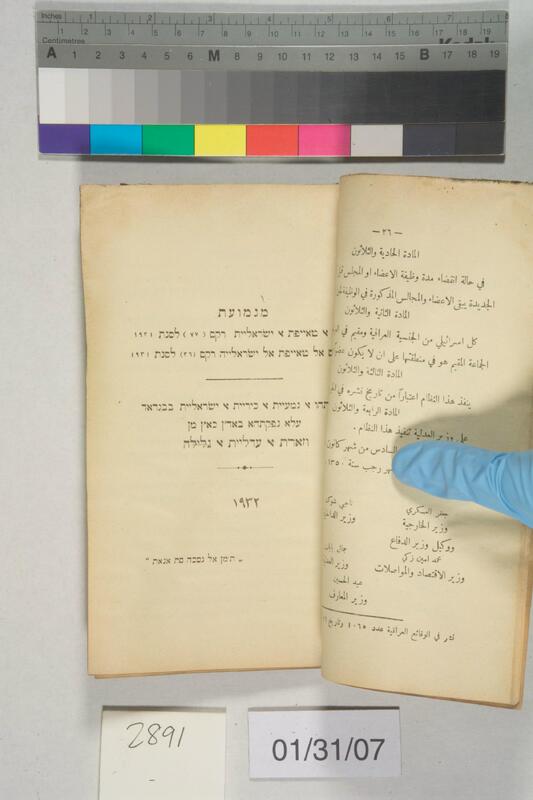 Inches 1 2 3 4 5 6 7
Centimetres 1 2 3 4 5 6 7 8 9 10 11 12 13 14 15 16 17 18 19
A 1 2 3 4 5 6 M 8 9 10 11 12 13 14 15 B 17 18 19
מגמועת
א טאייפת א ישראלית רקם (٧٧) לסנת ١٩٣١
אל טאייפת אל ישראלייה רקם (٣٦) לסנת ١٩٣١
א גמעיית א כיריית א ישראליית בבגדאד
עלא נפקתהא באדן כאץ מן
וזארת א עדליית א גלילה
١٩٣٢
— ٣٦ —
المادة الحادية والثلاثون
في حالة انقضاء مدة وظيفة الاعضاء او المجلس
الجديدة يبقى الاعضاء والمجالس المذكورة في الوظيفة
المادة الثانية والثلاثون
كل اسرائيلي من الجنسية العراقية ومقيم في
الجماعة المقيم هو في منطقتها على ان لا يكون
المادة الثالثة والثلاثون
ينفذ هذا النظام اعتباراً من تاريخ نشره في
المادة الرابعة والثلاثون
على وزير العدلية تنفيذ هذا النظام .
السادس من شهر كانون
شهر رجب سنة
جعفر العسكري
وزير الخارجية
ووكيل وزير الدفاع
محمد امين زكي
وزير الاقتصاد والمواصلات
ناجي شوكت
وزير
جمال بابان
وزير
عبد الحسين
وزير المعارف
نشر في الوقائع العراقية عدد ١٠٦٥ وتاريخ
2891
01/31/07